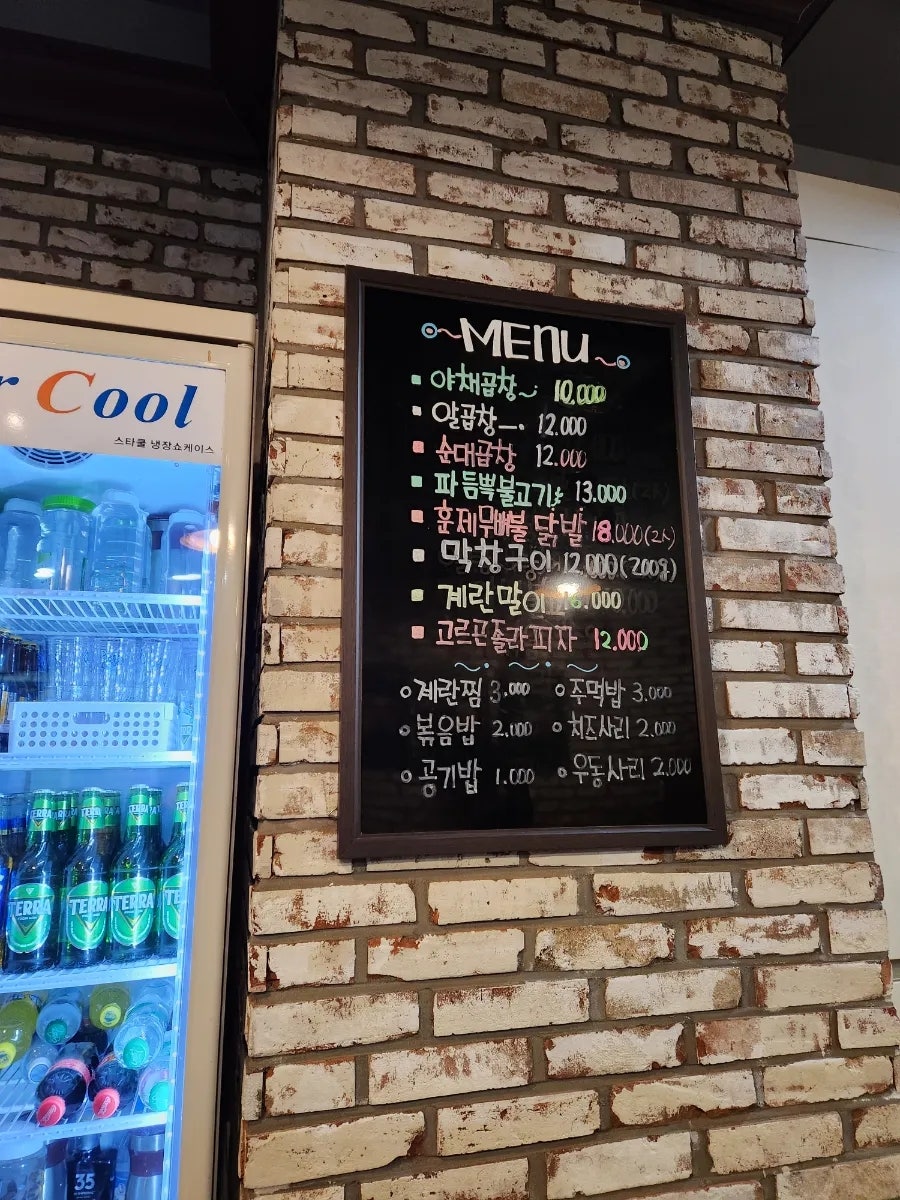 MENU
야채곱창 10.000
알곱창 12.000
순대곱창 12.000
파듬뿍불고기 13.000
훈제무뼈불닭발 18.000(2人)
막창구이 12.000(200g)
계란말이 .000
고르곤졸라피자 12.000
계란찜 3.000 주먹밥 3.000
볶음밥 2.000 치즈사리 2.000
공기밥 1.000 우동사리 2.000
r Cool
스타쿨 냉장쇼케이스
TERRA TERRA TERRA
35